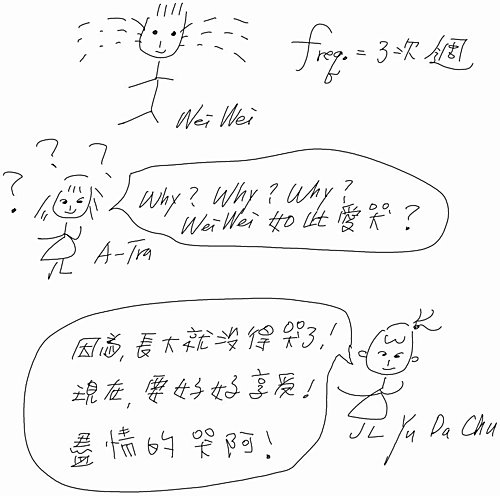 freq. = 3次/週
Wei Wei
? ? ?
Why? Why? Why?
Wei Wei 如此愛哭?
A-Tra
因為,長大就沒得哭了!
現在,要好好享受!
盡情的哭阿!
Yu Da Chu